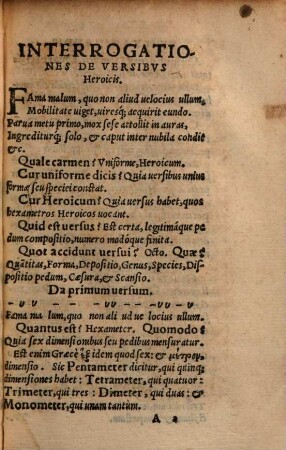 INTERROGATIO-
NES DE VERSIBVS
Heroicis.
FAma malum, quo non aliud uelocius ullum,
Mobilitate uiget, uiresq; acquirit eundo.
Parua metu primo, mox sese attollit in auras,
Ingrediturq; solo, & caput inter nubila condit
&c.
Quale carmen? Vniforme, Heroicum.
Cur uniforme dicis? Quia versibus unius
formæ seu speciei constat.
Cur Heroicum? Quia versus habet, quos
hexametros Heroicos uocant.
Quid est versus? Est certa, legitimáque pe
dum compositio, numero modóque finita.
Quot accidunt versui? Octo. Quæ?
Quātitas, Forma, Depositio, Genus, Species, Dis-
positio pedum, Cæsura, & Scansio.
Da primum versum.
Fama ma lum, quo non ali ud ue locius ullum.
Quantus est? Hexameter. Quomodo?
Quia sex dimensionibus seu pedibus mensuratur.
Est enim Græcè ἓξ idem quod sex: & μέτρον,
dimensio. Sic Pentameter dicitur, qui quinq;
dimensiones habet: Tetrameter, qui quatuor:
Trimeter, qui tres: Dimeter, qui duas: &
Monometer, qui unam tantùm.
A 2